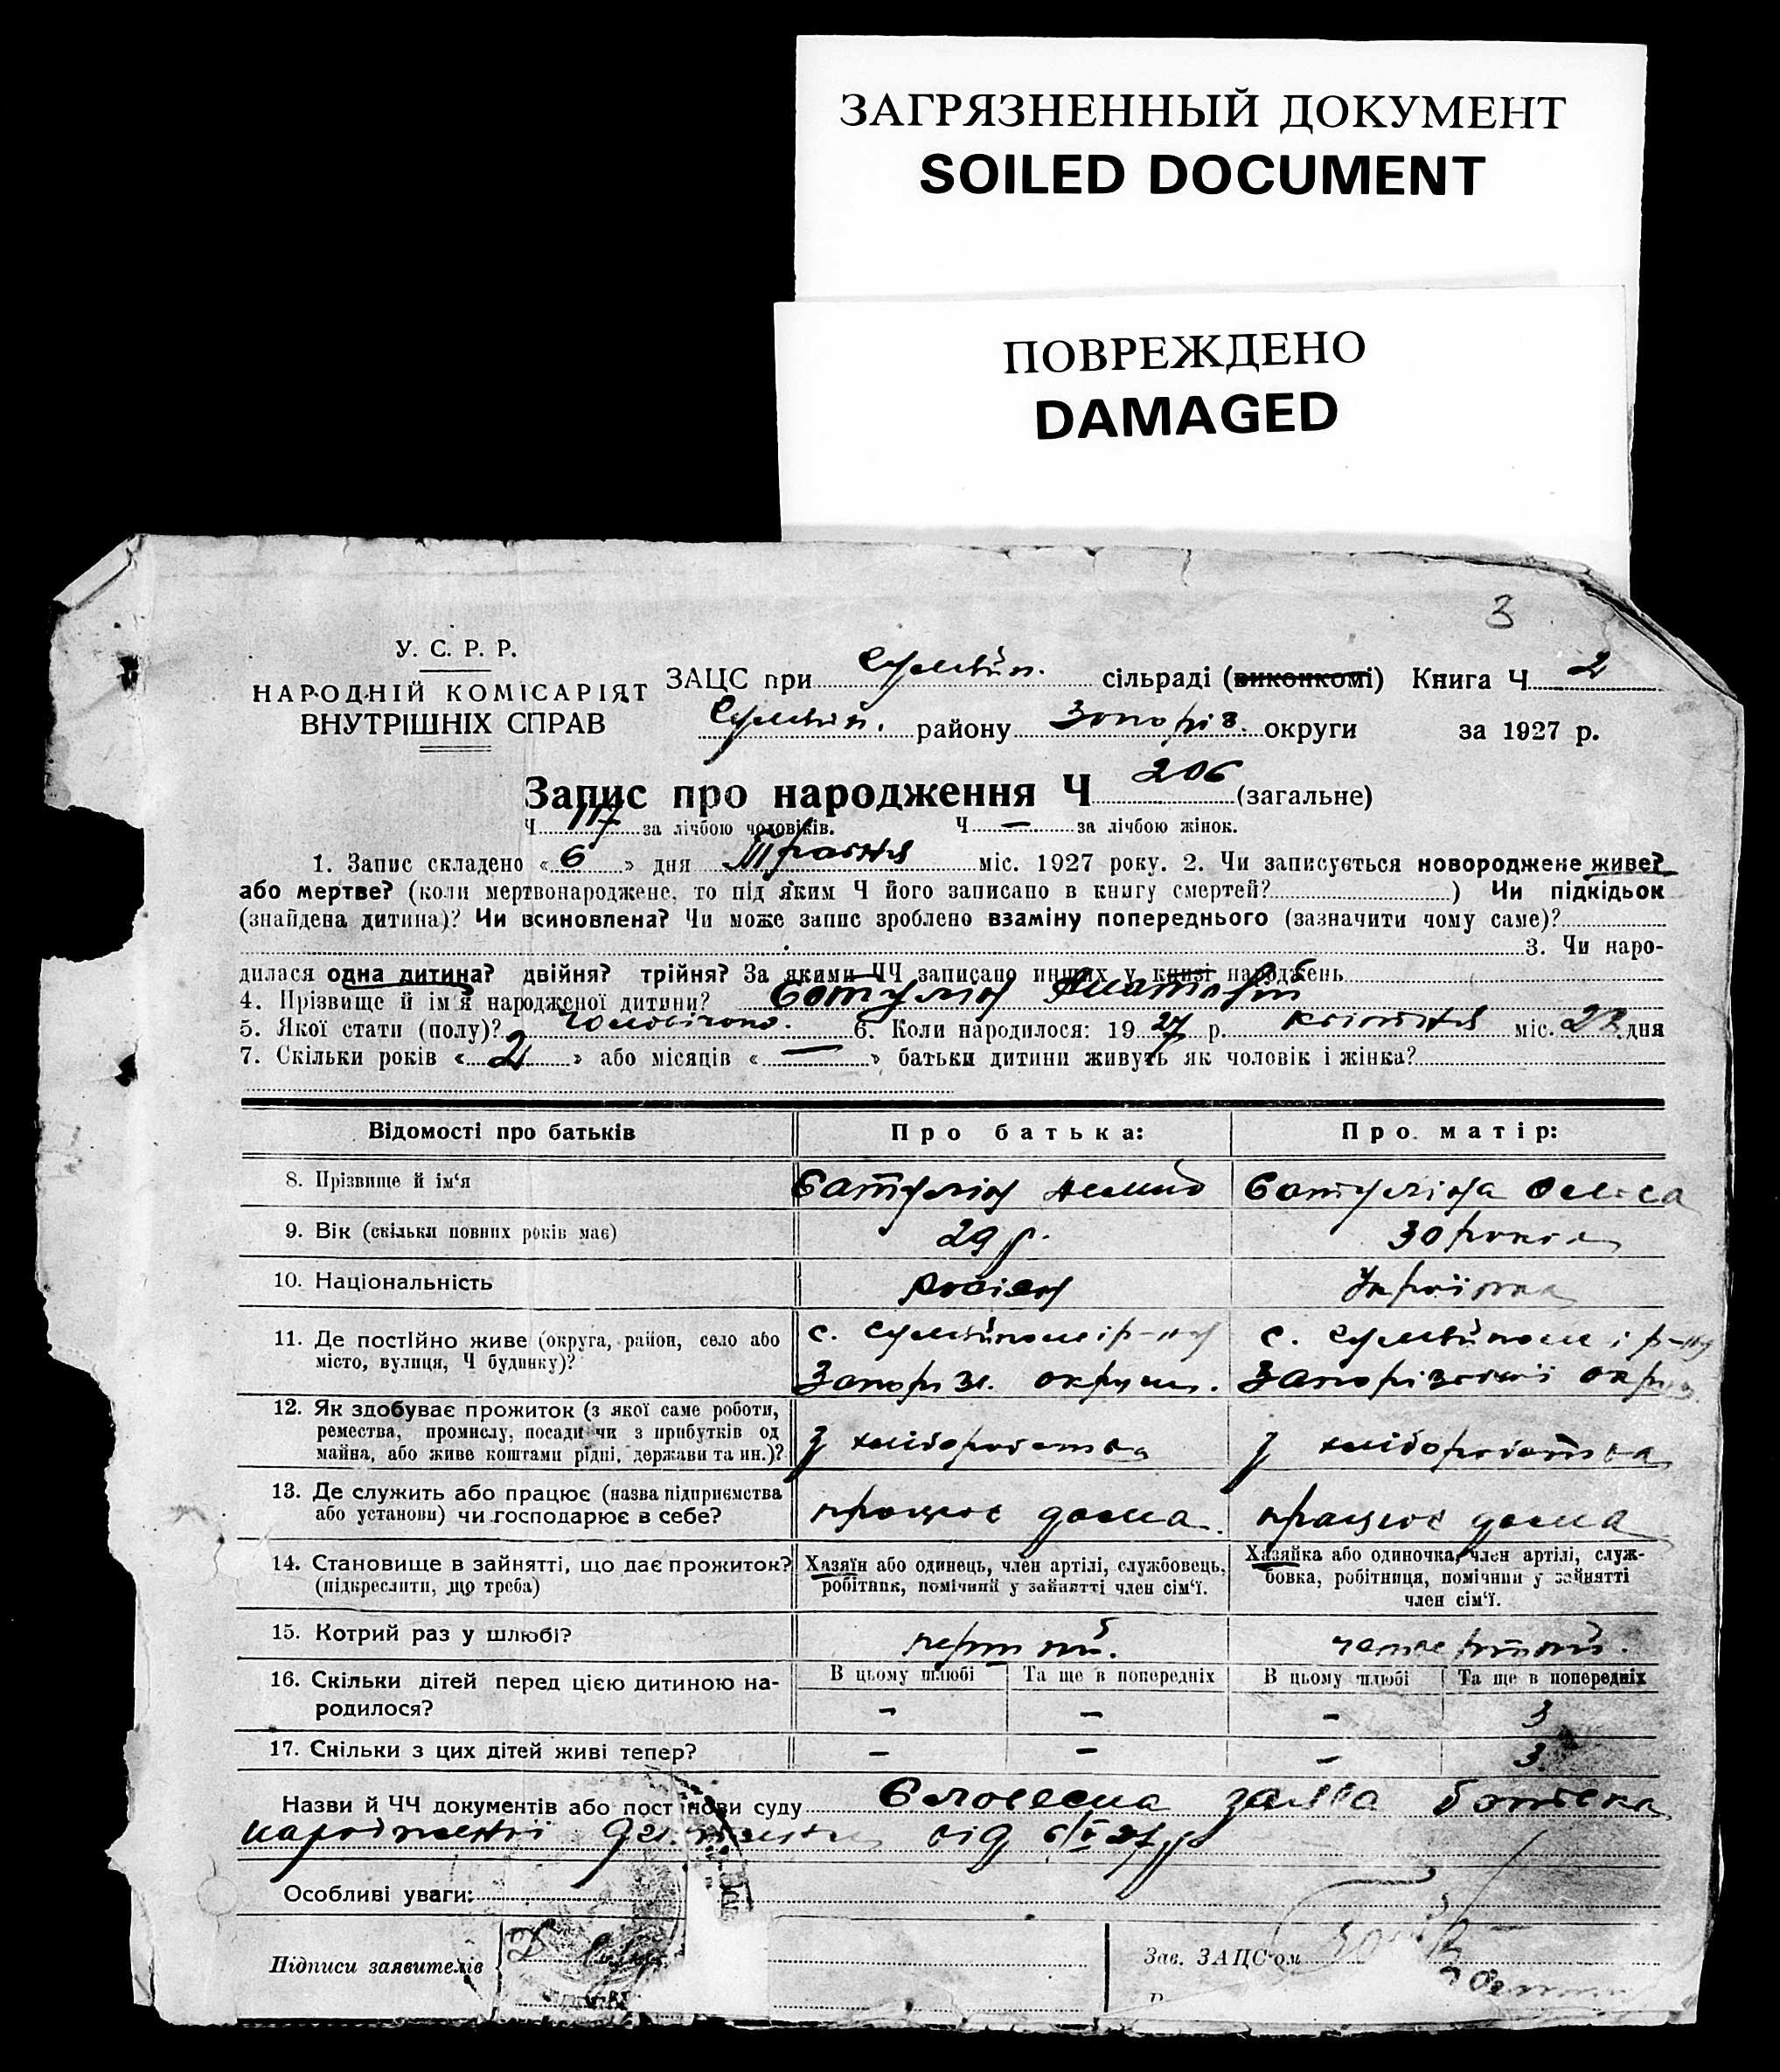 ЗАГРЯЗНЕННЫЙ ДОКУМЕНТ
SOILED DOCUMENT
ПОВРЕЖДЕНО
DAMAGED
3
У. С. Р. Р.
НАРОДНІЙ КОМІСАРІЯТ
ВНУТРІШНІХ СПРАВ
ЗАЦС при Гуляйп. сільраді (виконкомі) Книга Ч 2
Гуляйп. району Запоріз. округи за 1927 р.
Запис про народження Ч 206 (загальне)
Ч 117 за лічбою чоловіків. Ч — за лічбою жінок.
1. Запис складено « 6 » дня Травня міс. 1927 року. 2. Чи записується новороджене живе?
або мертве? (коли мертвонароджене, то під яким Ч його записано в книгу смертей? ) Чи підкідьок
(знайдена дитина)? Чи всиновлена? Чи може запис зроблено взаміну попереднього (зазначити чому саме)?
3. Чи наро-
дилася одна дитина? двійня? трійня? За якими ЧЧ записано инших у книзі народжень
4. Прізвище й ім'я народженої дитини? Анатолій
5. Якої стати (полу)? 6. Коли народилося: 19 27 р. квітня міс. 22 дня
7. Скільки років « 2 » або місяців « — » батьки дитини живуть як чоловік і жінка?
Відомості про батьків Про батька: Про матір:
8. Прізвище й ім'я
9. Вік (скільки повних років має) 29 р. 30 років
10. Національність росіян Українка
11. Де постійно живе (округа, район, село або с. Гуляйполе і р-ну с. Гуляйполе і р-ну
місто, вулиця, Ч будинку)? Запоріз. округи. Запорізської округ.
12. Як здобуває прожиток (з якої саме роботи,
ремества, промислу, посади чи з прибутків од з хліборобства з хліборобства
майна, або живе коштами рідні, держави та ин.)?
13. Де служить або працює (назва підприємства
або установи) чи господарює в себе? працює дома. працює дома
14. Становище в зайнятті, що дає прожиток? Хазяїн або одинець, член артілі, службовець, Хазяйка або одиночка, член артілі, служ-
(підкреслити, що треба) робітник, помічний у зайнятті член сім'ї. бовка, робітниця, помічнии у зайнятті
член сім'ї.
15. Котрий раз у шлюбі? перший. четвертий.
16. Скільки дітей перед цією дитиною на- В цьому шлюбі Та ще в попередніх В цьому шлюбі Та ще в попередніх
родилося? – – – 3
17. Скільки з цих дітей живі тепер? – – – 3
Назви й ЧЧ документів або постанови суду Словесна заява батька
народженої дитини від 6/V 27 р
Особливі уваги:
Підписи заявителів Зав. ЗАЦС'ом